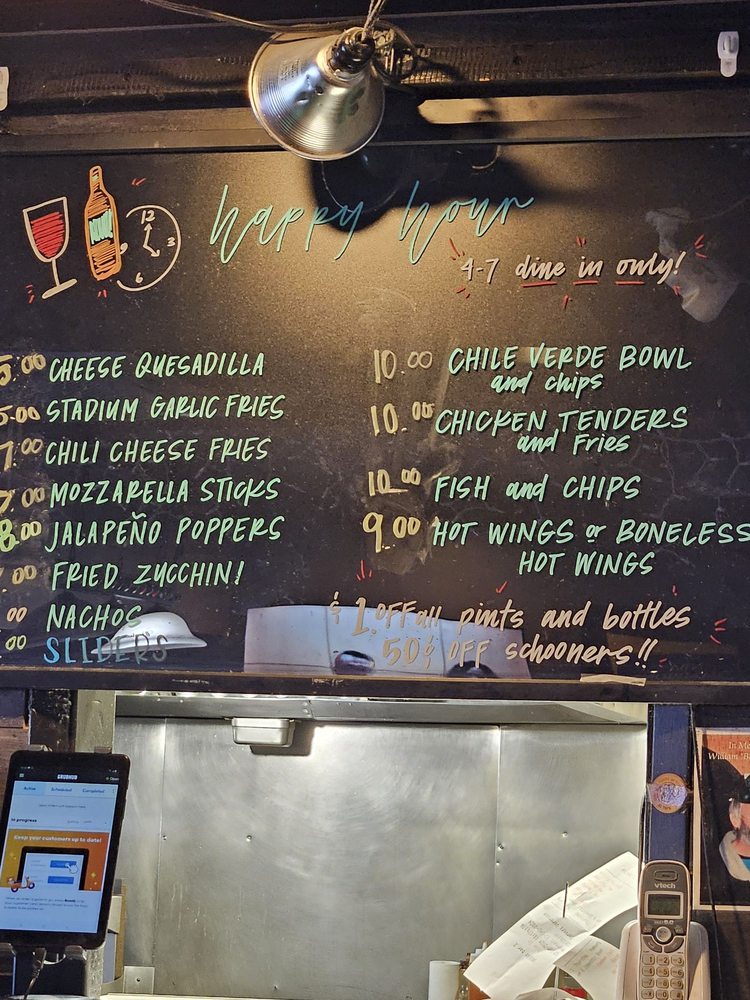 12
3
6
9
happy hour
4-7 dine in only!
5.00 CHEESE QUESADILLA
5.00 STADIUM GARLIC FRIES
7.00 CHILI CHEESE FRIES
7.00 MOZZARELLA STICKS
8.00 JALAPEÑO POPPERS
.00 FRIED ZUCCHINI
00 NACHOS
00 SLIDERS
10.00 CHILE VERDE BOWL
and chips
10.00 CHICKEN TENDERS
and Fries
10.00 FISH and CHIPS
9.00 HOT WINGS or BONELESS
HOT WINGS
$1.OFF all pints and bottles
50¢ OFF schooners!!
GRUBHUB
Open
Active Scheduled Completed
In progress
Keep your customers up to date!
In Me
William "B
vtech